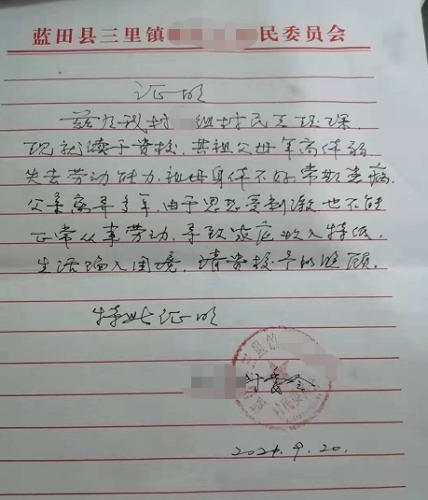 蓝田县三里镇 民委员会
证明
兹有我村 组村民王
现就读于贵校，其祖父母年高体弱
失去劳动能力，祖母身体不好常期患病，
父亲离异多年，由于思想受刺激也不能
正常从事劳动，导致家庭收入特低，
生活陷入困境，请贵校予以照顾。
特此证明
村委会
2021.9.20.